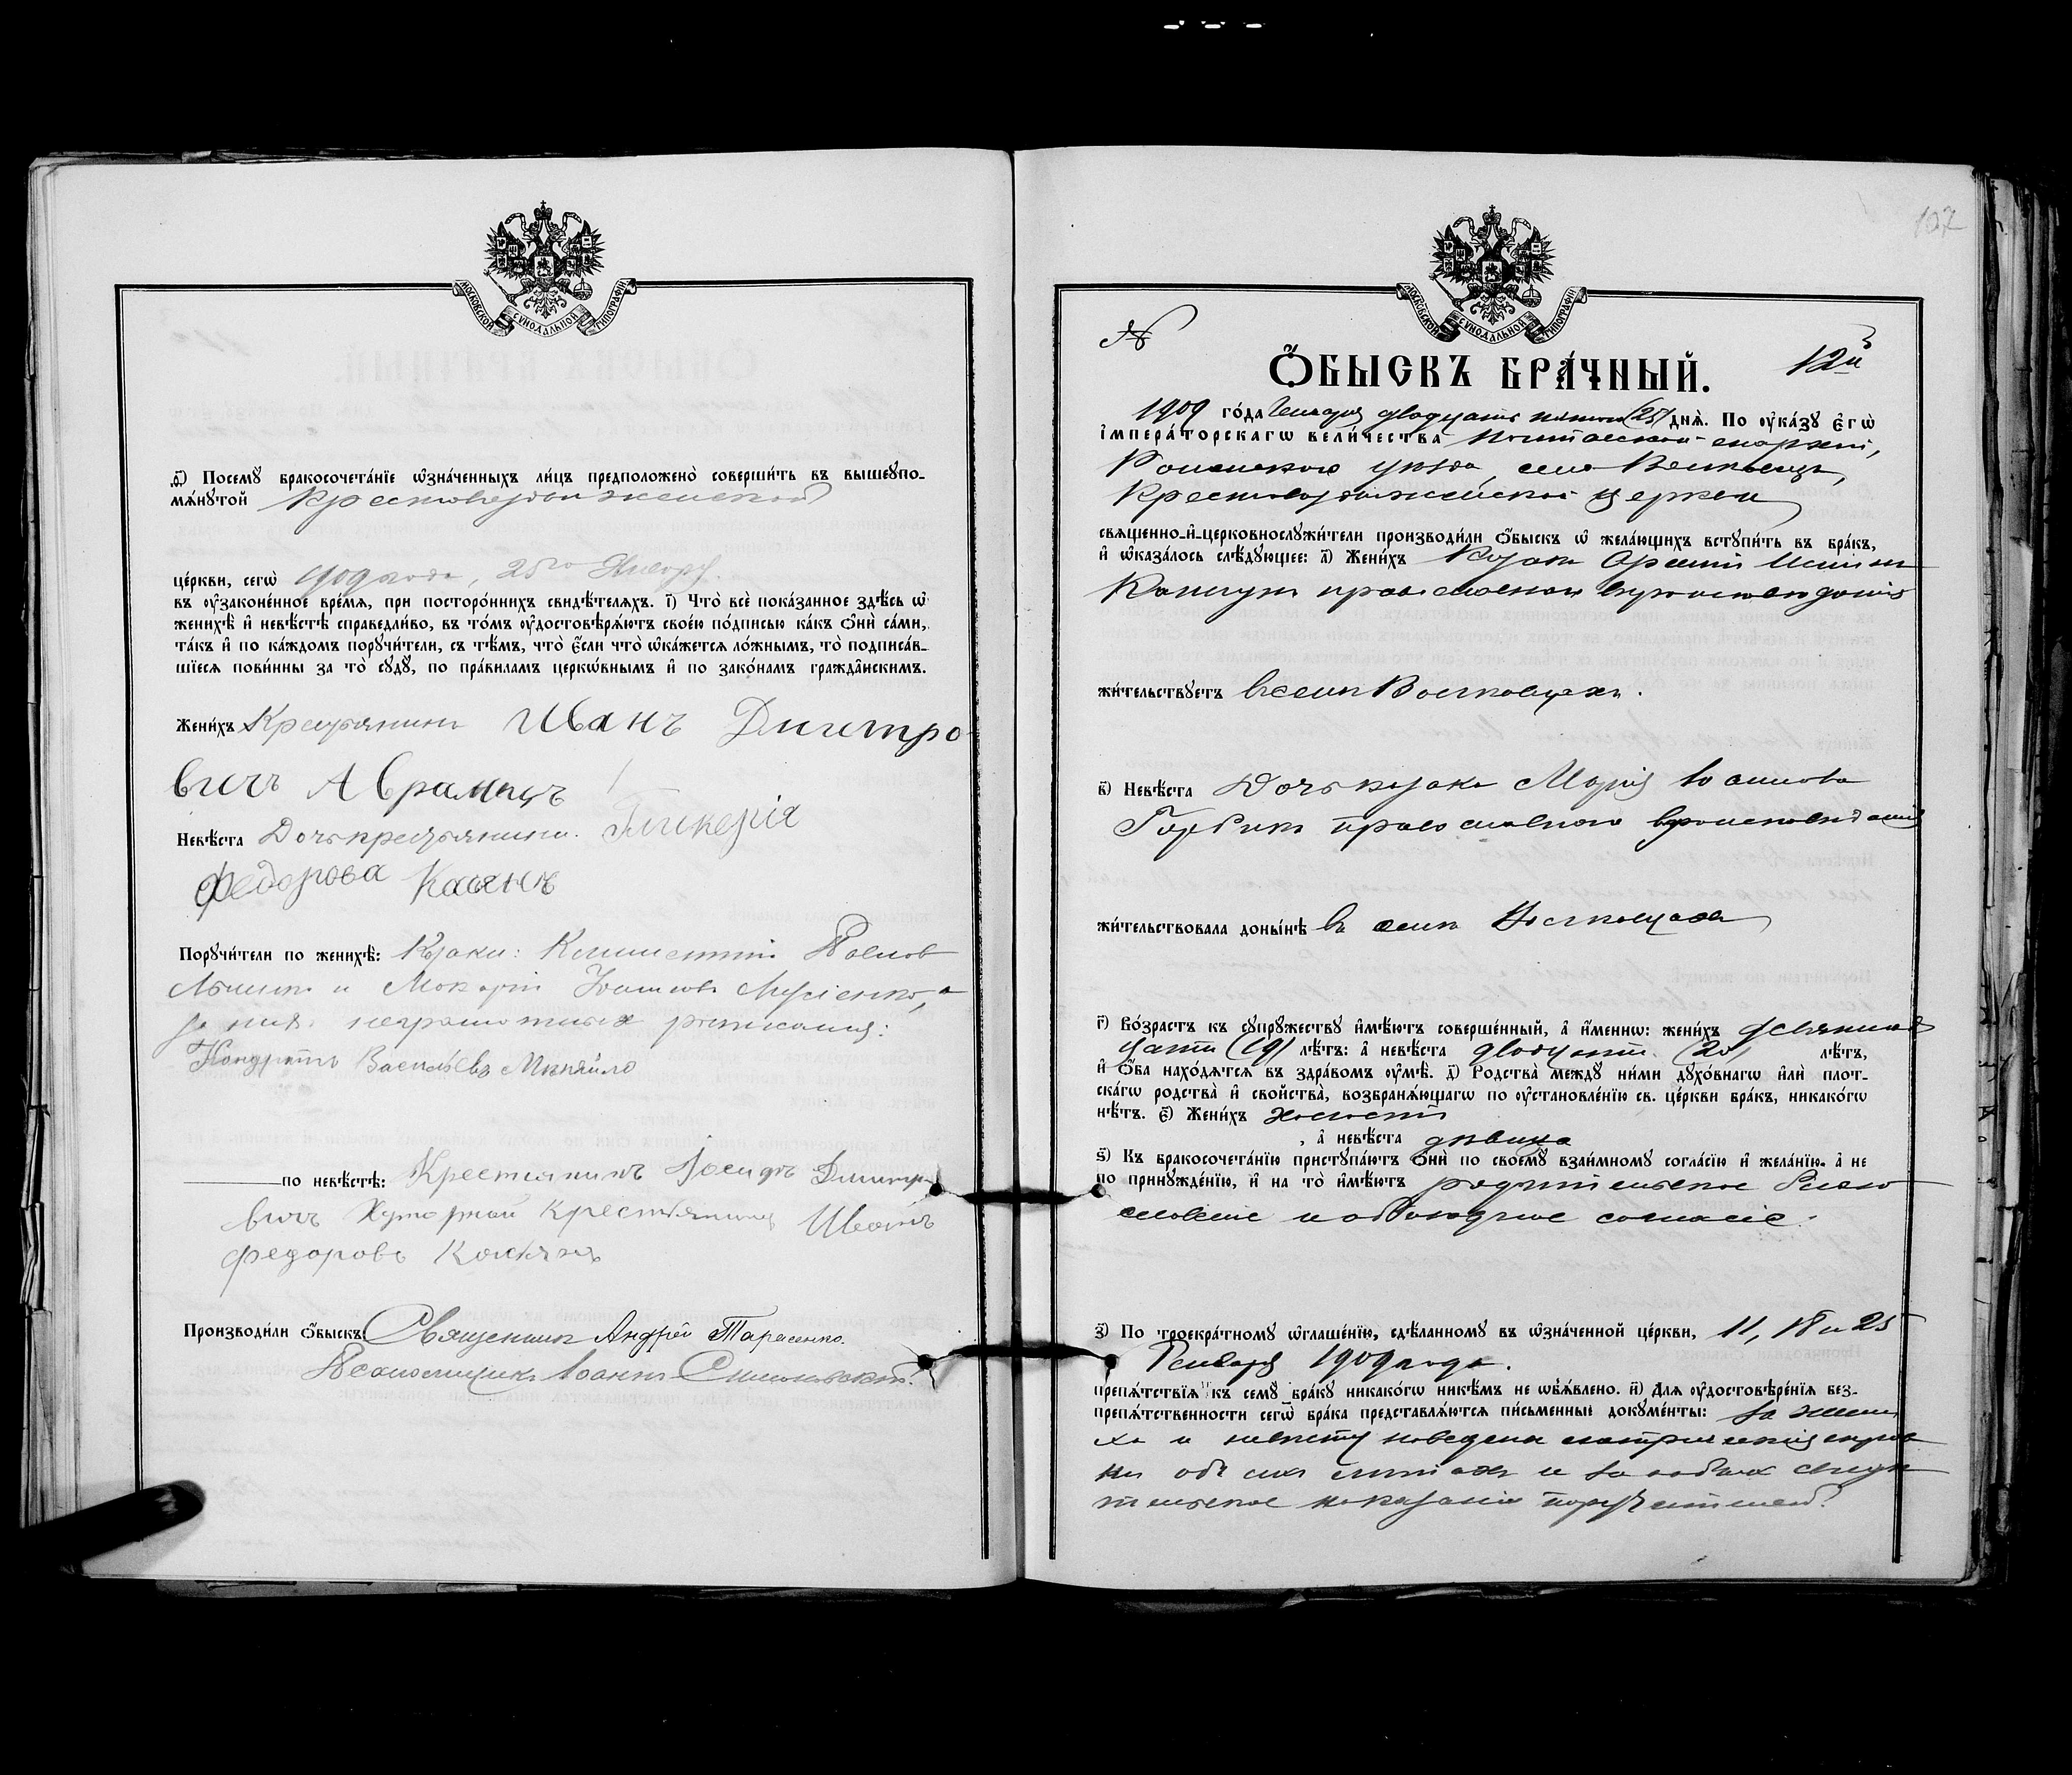 МОСКОВСКОЙ СѴНОДАЛЬНОЙ ТИПОГРАФІИ
ѳ҃) Посемꙋ̀ бракосочета́нїе ѡ҆зна́ченныхъ ли́цъ предположено̀ соверши́ть въ вышеꙋпо-
мѧ́нꙋтой Крестовоздвиженской
це́ркви, сегѡ̀ 1909 года, 25го Января
въ ᲂу҆законе́нное вре́мѧ, при посторо́ннихъ свидѣ́телѧхъ. і҃) Что̀ всѐ пока́занное здѣ́сь ѡ҆
женихѣ̀ и҆ невѣ́стѣ справедли́во, въ то́мъ ᲂу҆достовѣрѧ́ютъ свое́ю по́дписью ка́къ ѻ҆нѝ са́ми,
та́къ и҆ по ка́ждомъ порꙋчи́тели, съ тѣ́мъ, что̀ є҆́сли что̀ ѡ҆ка́жетсѧ ло́жнымъ, то̀ подписа́в-
шїесѧ пови́нны за то̀ сꙋдꙋ̀, по пра́виламъ церкѡ́внымъ и҆ по зако́намъ гражда̑нскимъ.
Жени́хъ Крестьянинъ Иванъ Дмитро-
вичъ Аврамец
Невѣ́ста Дочь крестьянина Гликерія
Федорова
Порꙋчи́тели по женихѣ̀: Козаки: Климентій Павлов
и Макарій Іоаннов а
за них неграмотных росписался:
Кондратъ Васильевъ
по невѣ́стѣ: Крестиянинъ Іосифъ Дмитр
вичъ Хуторной Крестьянинъ Иванъ
Федоровъ
Производи́ли ѻ҆́быскъ: Священникъ Андрей Тарасенко.
Псаломщикъ Іоаннъ
107
МОСКОВСКОЙ СѴНОДАЛЬНОЙ ТИПОГРАФІИ
№
12й
Ѻ҆́БЫСКЪ БРА́ЧНЫЙ.
1909 го́да Генваря двадцать пятого (25) днѧ̀. По ᲂу҆ка́зꙋ Є҆гѡ̀
і҆мпера́торскагѡ вели́чества Полтавской епархіи,
Роменского уѣзда, села Волковцъ,
Крестовоздвиженской церкви
свѧще́нно-и҆-церковнослꙋжи́тели производи́ли ѻ҆́быскъ ѡ҆ жела́ющихъ встꙋпи́ть въ бра́къ,
и҆ ѡ҆каза́лось слѣ́дꙋющее: а҃) Жени́хъ Козакъ Арсеній
православнаго вѣроисповѣданія
жи́тельствꙋетъ въ селѣ Волковцахъ.
в҃) Невѣ́ста Дочь козака Марія Іоаннова
Горбикъ православного вѣроисповѣданія
жи́тельствовала доны́нѣ въ селѣ Волковцахъ
г҃) Во́зрастъ къ сꙋпрꙋ́жествꙋ и҆мѣ́ютъ соверше́нный, а҆ и҆́меннѡ: жени́хъ девятнад-
цати (19) лѣ́тъ: а҆ невѣ́ста двадцати (20) лѣ́тъ,
и҆ ѻ҆́ба нахо́дѧтсѧ въ здра́вомъ ᲂу҆мѣ̀. д҃) Родства̀ междꙋ̀ ни́ми дꙋхо́внагѡ и҆лѝ плот-
ска́гѡ родства̀ и҆ сво́йства, возбранѧ́ющагѡ по ᲂу҆становле́нїю св. це́ркви бра́къ, никако́гѡ
нѣ́тъ. є҃) Жени́хъ холостъ
, а҆ невѣ́ста дѣвица
ѕ҃) Къ бракосочета́нїю пристꙋпа́ютъ ѻ҆нѝ по своемꙋ̀ взаи́мномꙋ согла́сїю и҆ жела́нїю, а҆ не
по принꙋжде́нїю, и҆ на то̀ и҆мѣ́ютъ родительское благо-
словеніе и обоюдное согласіе.
з҃) По троекра́тномꙋ ѡ҆глаше́нїю, сдѣ́ланномꙋ въ ѡ҆зна́ченной це́ркви, 11, 18 и 25
Генваря 1909 года.
препѧ́тствїѧ къ семꙋ̀ бра́кꙋ никако́гѡ никѣ́мъ не ѡ҆б̾ѧ́влено. и҃) Длѧ ᲂу҆достовѣре́нїѧ без-
препѧ́тственности сегѡ̀ бра́ка представлѧ́ютсѧ пи́сьменные докꙋме́нты: За жени-
ха и невѣсту наведена метрическія справ-
ки объ ихъ лѣтахъ и за обоихъ свидѣ-
тельское показаніе поручителей.